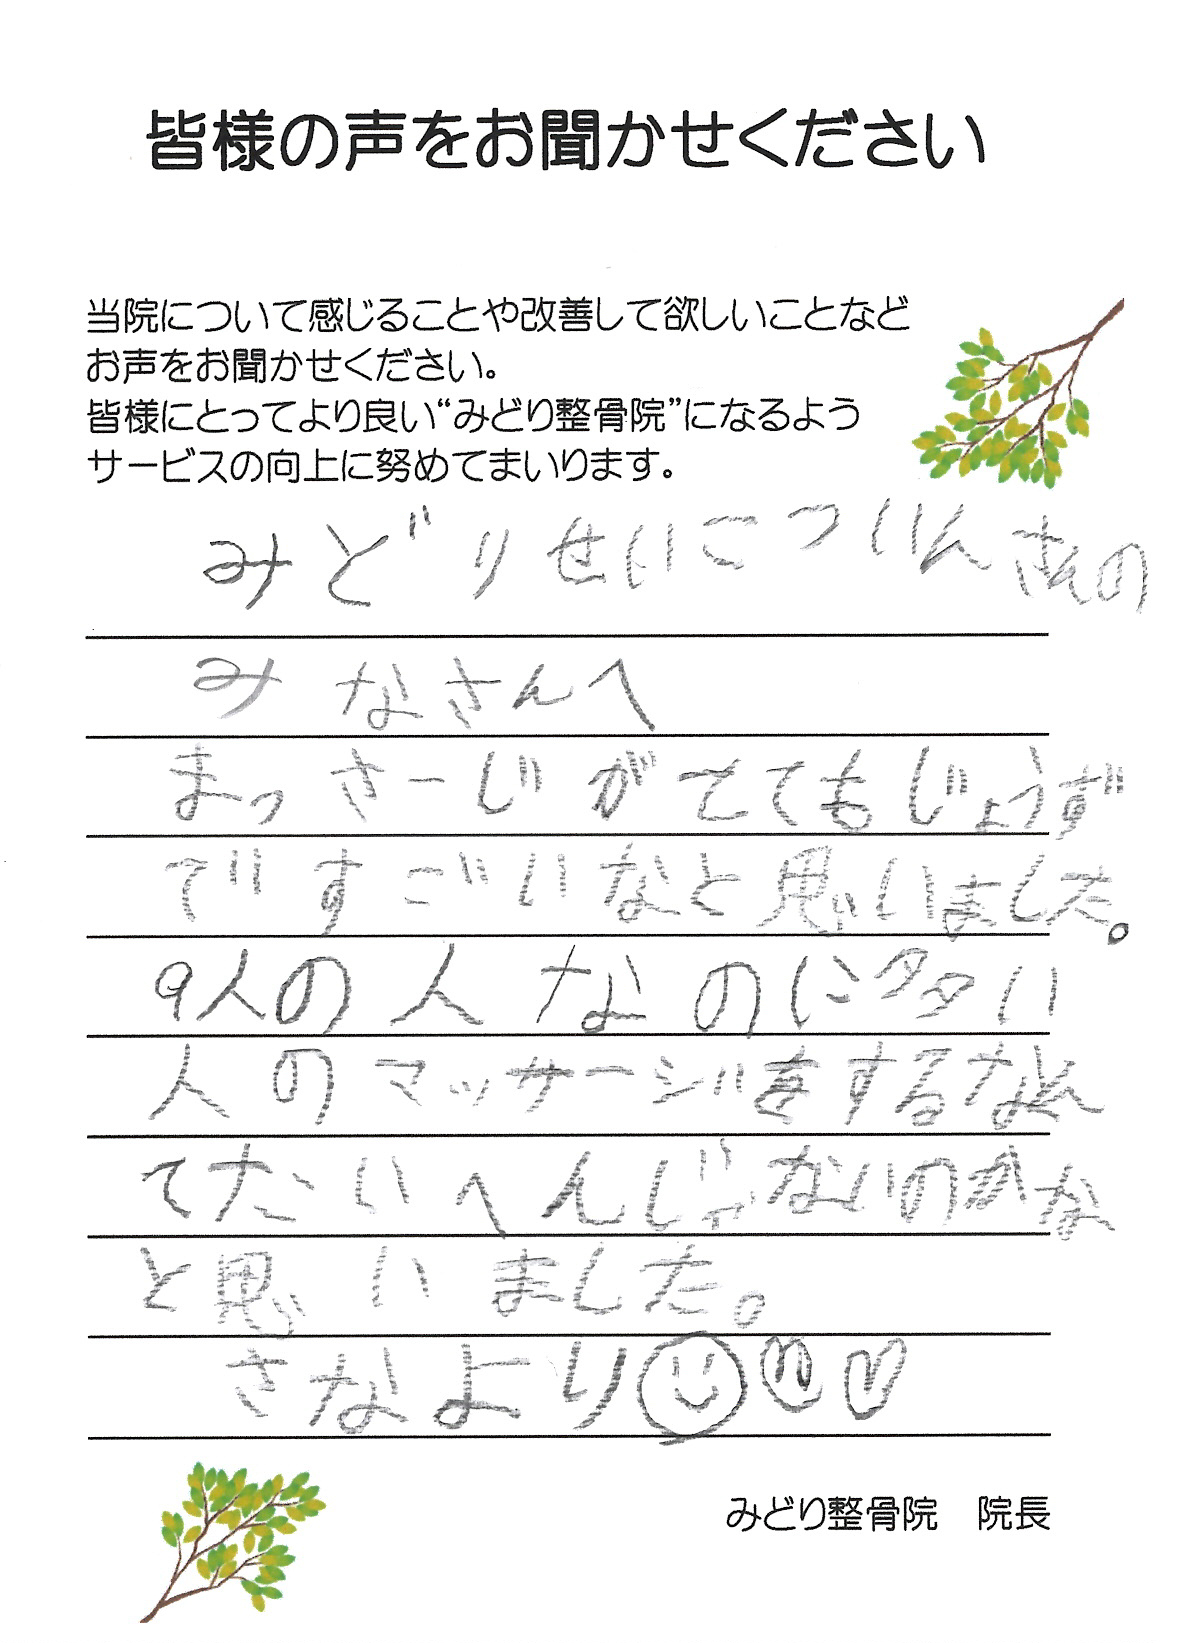 皆様の声をお聞かせください
当院について感じることや改善して欲しいことなど
お声をお聞かせください。
皆様にとってより良い“みどり整骨院”になるよう
サービスの向上に努めてまいります。
みどりせいこついんさんの
みなさんへ
まっさーじがとてもじょうず
ですごいなと思いました。
9人の人なのに多い
人のマッサージをするなん
てたいへんじゃないのかな
と思いました。
さなより
みどり整骨院 院長